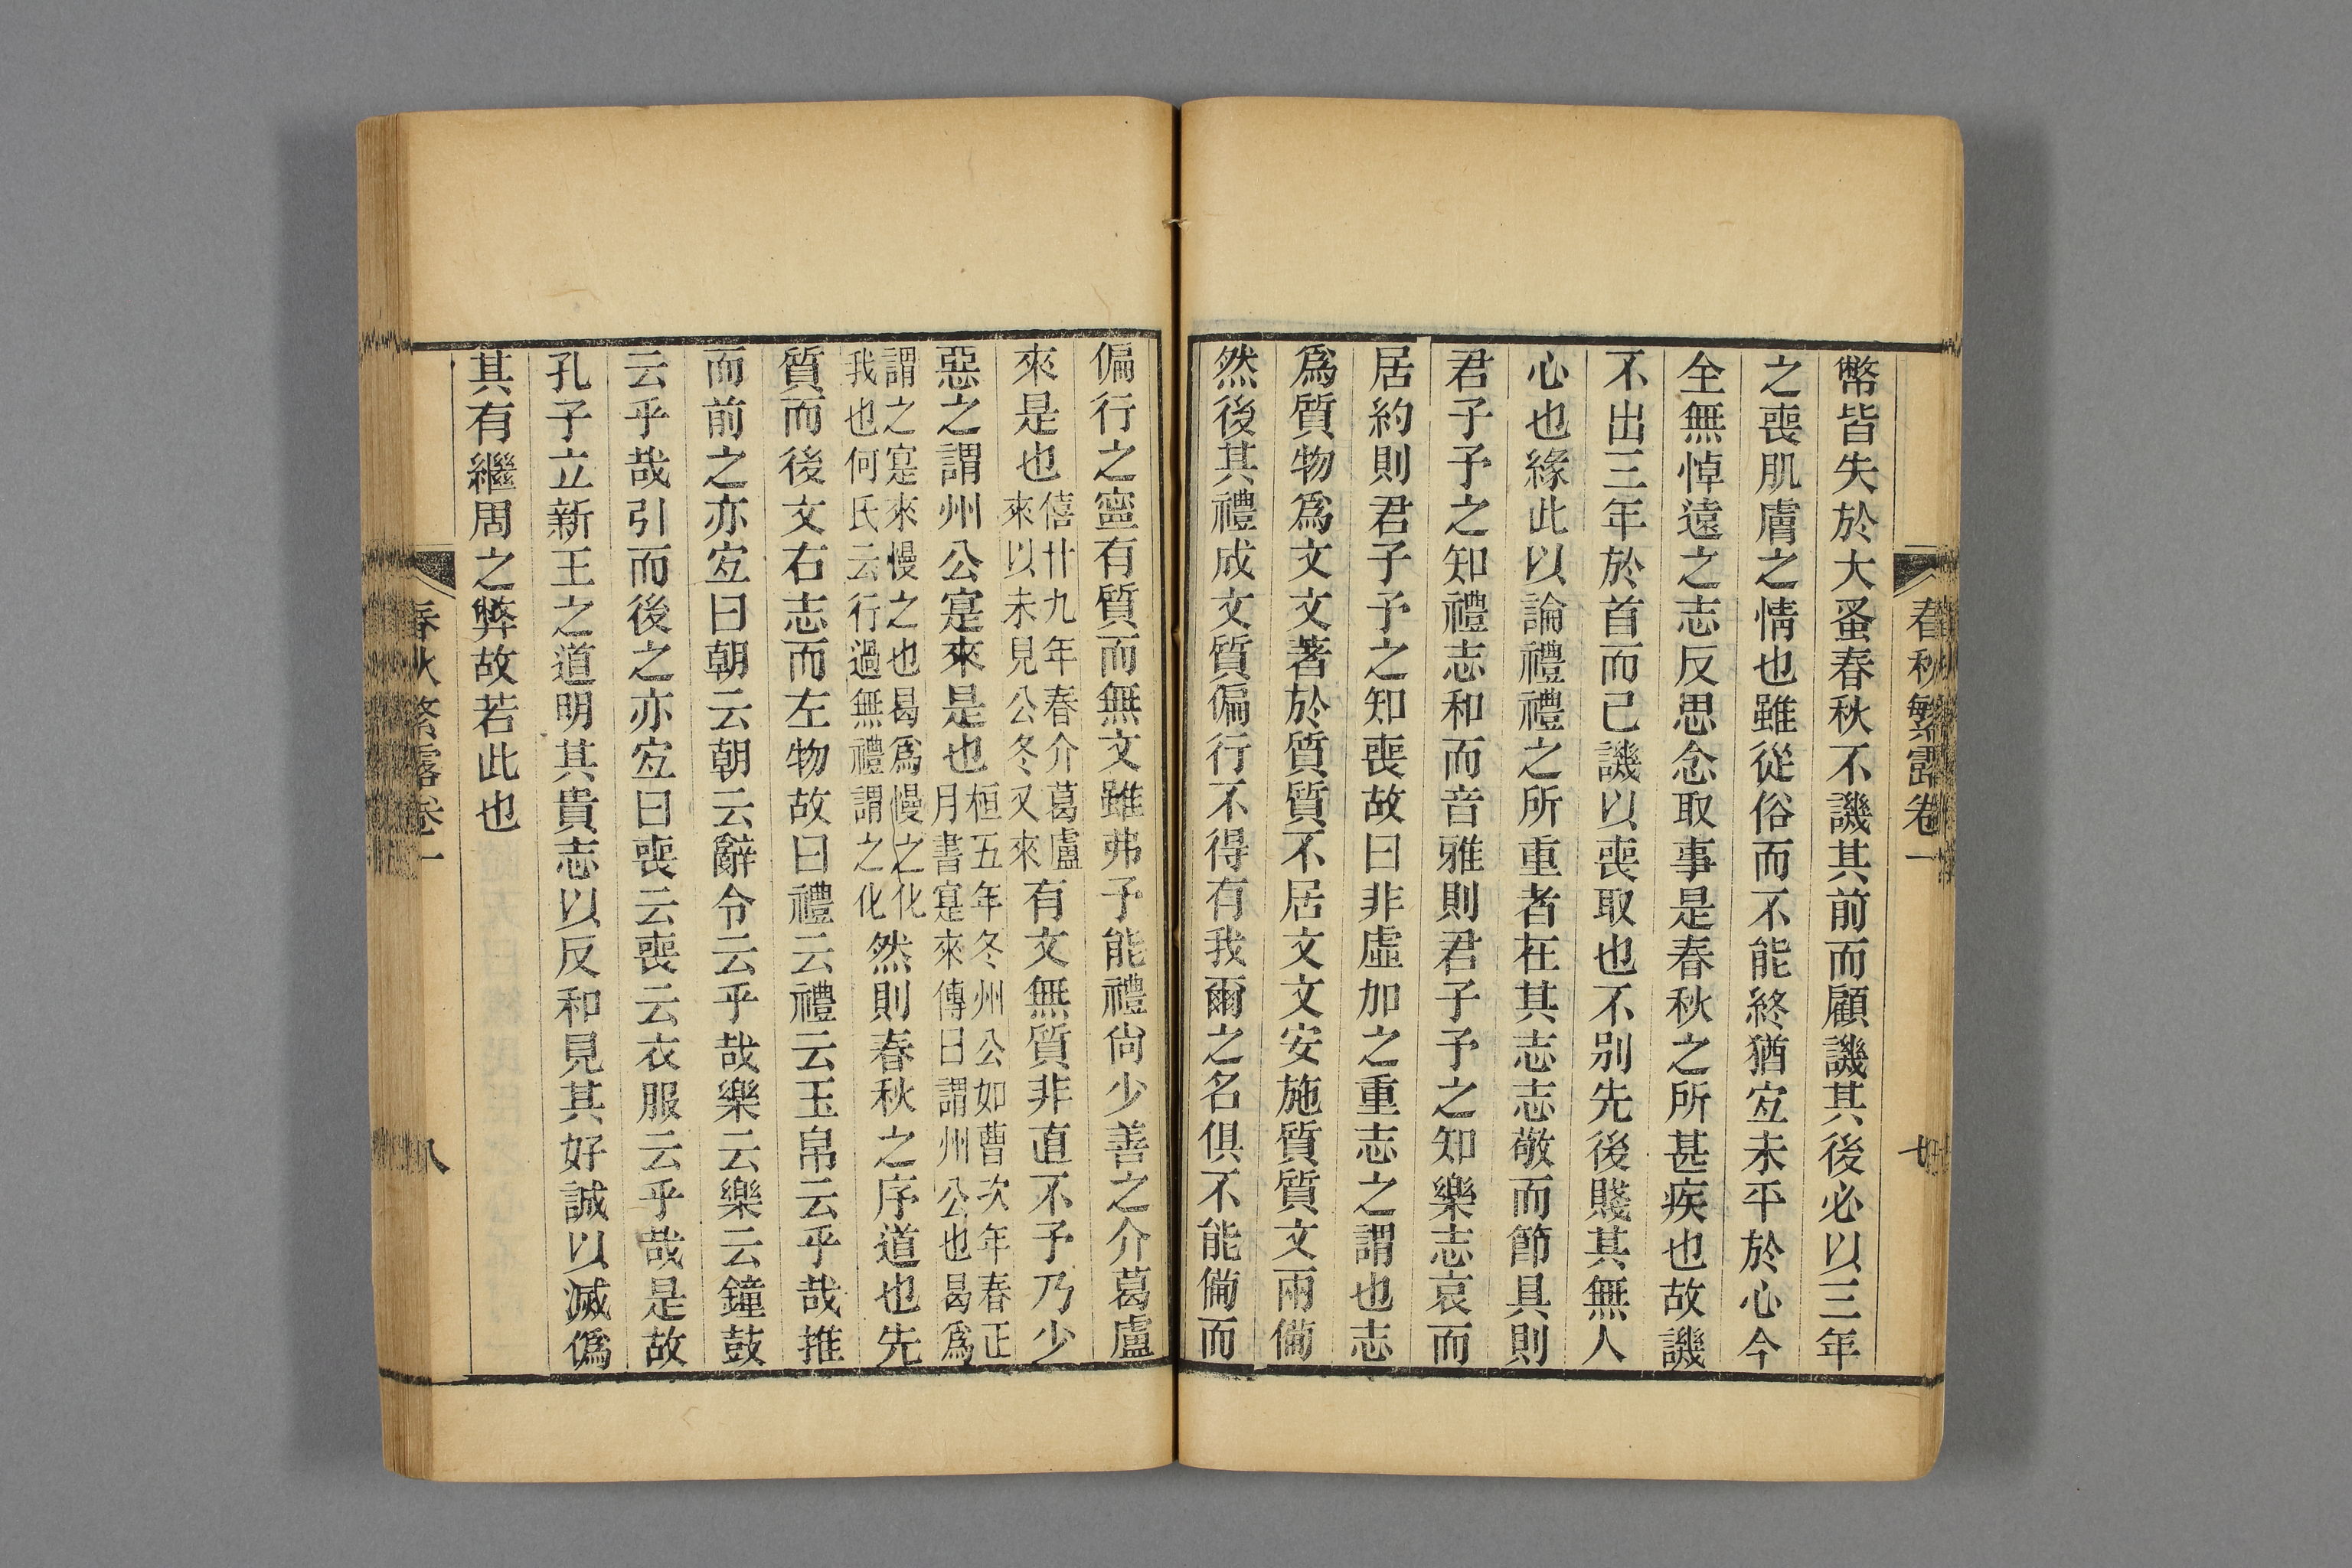 春秋繁露卷一
七
幣皆失於大蚤春秋不譏其前而顧譏其後必以三年
之喪肌膚之情也雖從俗而不能終猶宐未平於心今
全無悼遠之志反思念取事是春秋之所甚疾也故譏
不出三年於首而已譏以喪取也不别先後賤其無人
心也緣此以論禮禮之所重者在其志志敬而節具則
君子予之知禮志和而音雅則君子予之知樂志哀而
居約則君子予之知喪故曰非虛加之重志之謂也志
爲質物爲文文著於質質不居文文安施質質文兩僃
然後其禮成文質偏行不得有我爾之名俱不能僃而
偏行之寧有質而無文雖弗予能禮尙少善之介葛盧
來是也僖廿九年春介葛盧來以未見公冬又來有文無質非直不予乃少
惡之謂州公寔來是也桓五年冬州公如曹次年春正月書寔來傳曰謂州公也曷爲
謂之寔來慢之也曷爲慢之化我也何氏云行過無禮謂之化然則春秋之序道也先
質而後文右志而左物故曰禮云禮云玉帛云乎哉推
而前之亦宐曰朝云朝云辭令云乎哉樂云樂云鐘鼓
云乎哉引而後之亦宐曰喪云喪云衣服云乎哉是故
孔子立新王之道明其貴志以反和見其好誠以滅僞
其有繼周之弊故若此也
春秋繁露卷一
八